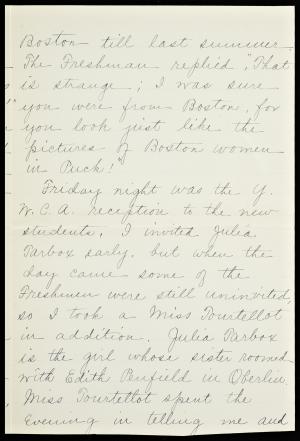 Boston till last summer.
The Freshman replied, "That
is strange; I was sure
you were from Boston, for
you look just like the
pictures of Boston women
in Puck!"
Friday night was the Y.
W. C. A. reception to the new
students. I invited Julia
Tarbox early, but when the
day came some of the
Freshmen were still uninvited,
so I took a Miss Tourtellot
in addition. Julia Tarbox
is the girl whose sister roomed
with Edith Penfield in Oberlin.
Miss Tourtellot spent the
evening in telling me and